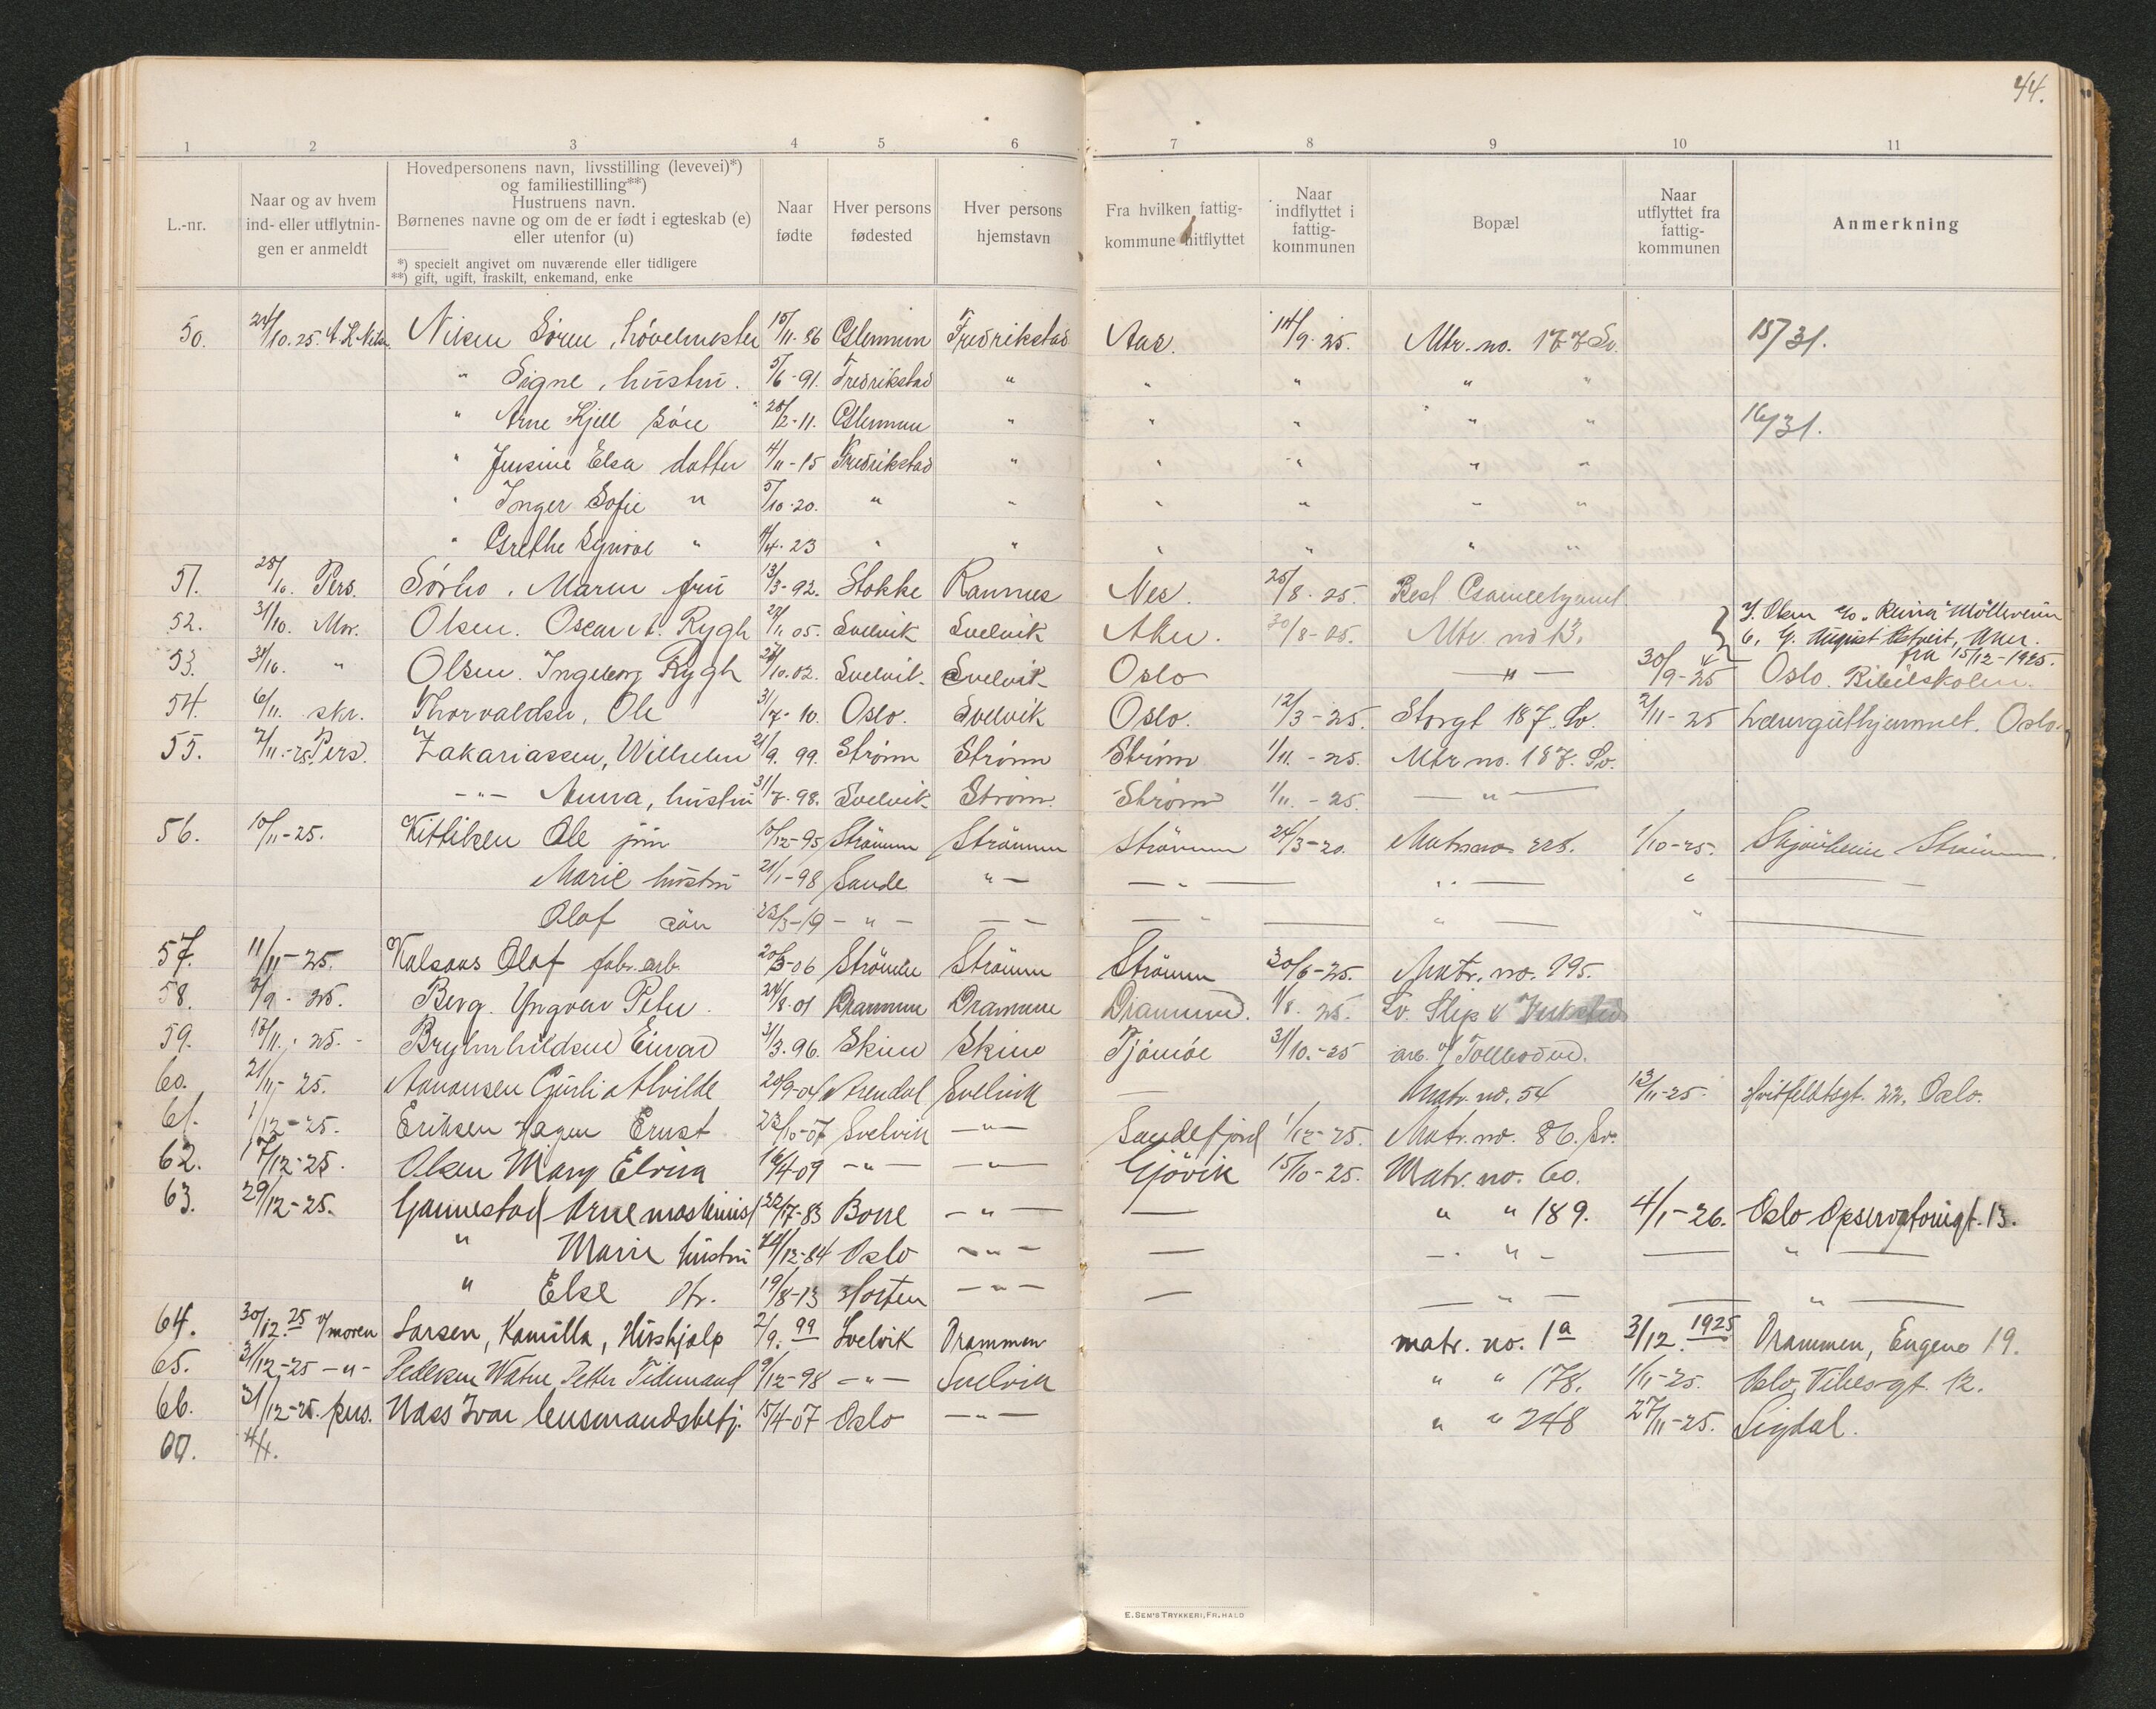 44.
1 2 3 4 5 6 7 8 9 10 11
L.-nr.
Naar og av hvem
ind- eller utflytnin-
gen er anmeldt
Hovedpersonens navn, livsstilling (levevei)*)
og familiestilling**)
Hustruens navn.
Børnenes navne og om de er født i egteskab (e)
eller utenfor (u)
*) specielt angivet om nuværende eller tidligere
**) gift, ugift, fraskilt, enkemand, enke
Naar
fødte
Hver persons
fødested
Hver persons
hjemstavn
Fra hvilken fattig-
kommune hitflyttet
Naar
indflyttet i
fattig-
kommunen
Bopæl
Naar
utflyttet fra
fattig-
kommunen
Anmerkning
50. 24/10.25. Nilsen Sören, hövelmester 15/11.86 Glemmen Fredrikstad Aas. 14/9.25. Mtr. no. 177 Sv. 15/31.
" Signe, hustru. 5/6-91. Fredrikstad " " " " "
" Arne Kjell sön 28/2-11. Glemmen " " " " " 16/31.
" Jensine Elsa datter 4/11-15 Fredrikstad " " " " "
" Inger Sofie " 5/10.20. " " " " " "
" Grethe Synöve " 4/4.23 " " " " " "
51. 28/10. Pers. Sørbo, Maren fru 13/3-92. Stokke Ramnes Nes. 25/8.25.
52. 31/10. Mor. Olsen. Oscar A. Rygh 29/11 05. Svelvik Svelvik Aker. 30/8-25. Mtr. no 13. Y. Olsen c/o. "Reina" Möllveien
6. G. August Astveit, Aker.
fra 15/12-1925.
53. 31/10. " Olsen. Ingeborg Rygh 10.02. Svelvik. Svelvik Oslo — " — 30/9-25 Oslo. Bibelskolen.
54. 6/11. skr. Thorvaldsen, Ole 31/7-10. Oslo. Svelvik Oslo. 12/3-25. Storgt 187. Sv. 2/11-25 Læregutthjemmet. Oslo.
55. 7/11.-25. Pers. Zakariassen, Wilhelm 21/9. 99. Strømm Strømm Strømm 1/11.-25. Mtr no. 187. Sv.
— " — Anna, hustru 31/7.98. Svelvik Strømm. Strømm 1/11.-25. — " —
56. 10/11-25. Kittilsen Ole jun 10/12-95 Strömm Strömm Strömm 24/3-20. 1/10-25. Skjönheim Strömm.
Marie hustru 21/1-98 Sande " — — " — " — " —
Olaf sön 23/3-19 — " — — " — — " — — " — " —
57. 11/11-25. Kalsaas Olaf fabr. arb. 20/3-06 Strömm Strömm Strömm 30/6-25. Matr. no. 195.
58. 7/9-25. Berg. Yngvar Peter. 24/8-01 Drammen Drammen Drammen. 1/8. 25. Sv. Slip &
59. 17/11.25. - Brynhildsen Einar 31/3.96. Skien Skien Tjömöe 31/10.-25 arb. v/ Tollboden.
60. 21/11-25. Aanonsen Gurli Alvilde 20/9-04 Arendal Svelvik — Matr. no. 54 13/11-25. Hvitfeldtsgt. 22, Oslo.
61. 1/12-25. Eriksen Hagen Ernst 23/10-07 Svelvik — " — Sandefjord 1/12-25. Matr. no. 86. Sv.
62. 17/12-25. Olsen Mary Elvira 16/4-09 — " — — " — Gjövik 15/10-25. Matr. no. 60.
63. 29/12-25. Gannestad Arne maskinist 22/7-83 Borre — " — — " " 189. 4/1-26. Oslo Opservatorigt. 13.
" Marie hustru 24/12-84 Oslo — " — — — " — — " —
" Else dtr. 19/8-13 Horten — " — — — " — — " —
64. 30/12.25 v/ moren Larsen, Kamilla, Hushjelp 2/9.99 Svelvik Drammen matr. no. 1a 3/12. 1925 Drammen, Engene 19.
65. 31/12-25 — " — Pedersen Watne Petter Tidemand 9/12-98 — " — Svelvik " " 178. 1/11-25. Oslo, Vibesgt. 12.
66. 31/12-25. pers. Næss Ivar lensmandsbetj. 15/4-07 Oslo — " — " " 248 27/11-25. Sigdal.
67. 4/1.
E. SEM'S TRYKKERI, FR.HALD